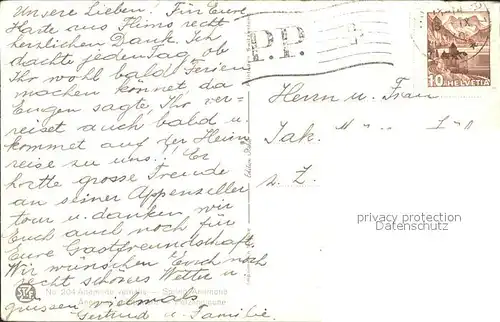 Unsere Lieben! Für Eure
Karte aus Flims recht
herzlichen Dank. Ich
dachte jeden Tag, ob
Ihr wohl bald Ferien
machen könnet, da
Eugen sagte, Ihr ver-
reiset auch bald u.
kommet auf der Heim
reise zu uns. Er
hatte grosse Freude
an seiner Appenzeller
tour u. danken wir
Euch auch noch für
Eure Gastfreundschaft.
Wir wünschen Euch noch
recht schönes Wetter u.
grüssen vielmals
Gertrud u. Familie.
P.P.
10 HELVETIA
Herrn u. Frau
Jak. H
z. Z.
privacy protection
Datenschutz
No 204 Anemone vernalis